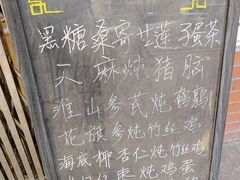 黑糖桑寄生莲子蛋茶
天麻炖猪脑
淮山参芪炖鹌鹑
花旗参炖竹丝鸡
海底椰杏仁炖竹丝鸡
枣炖鸡蛋